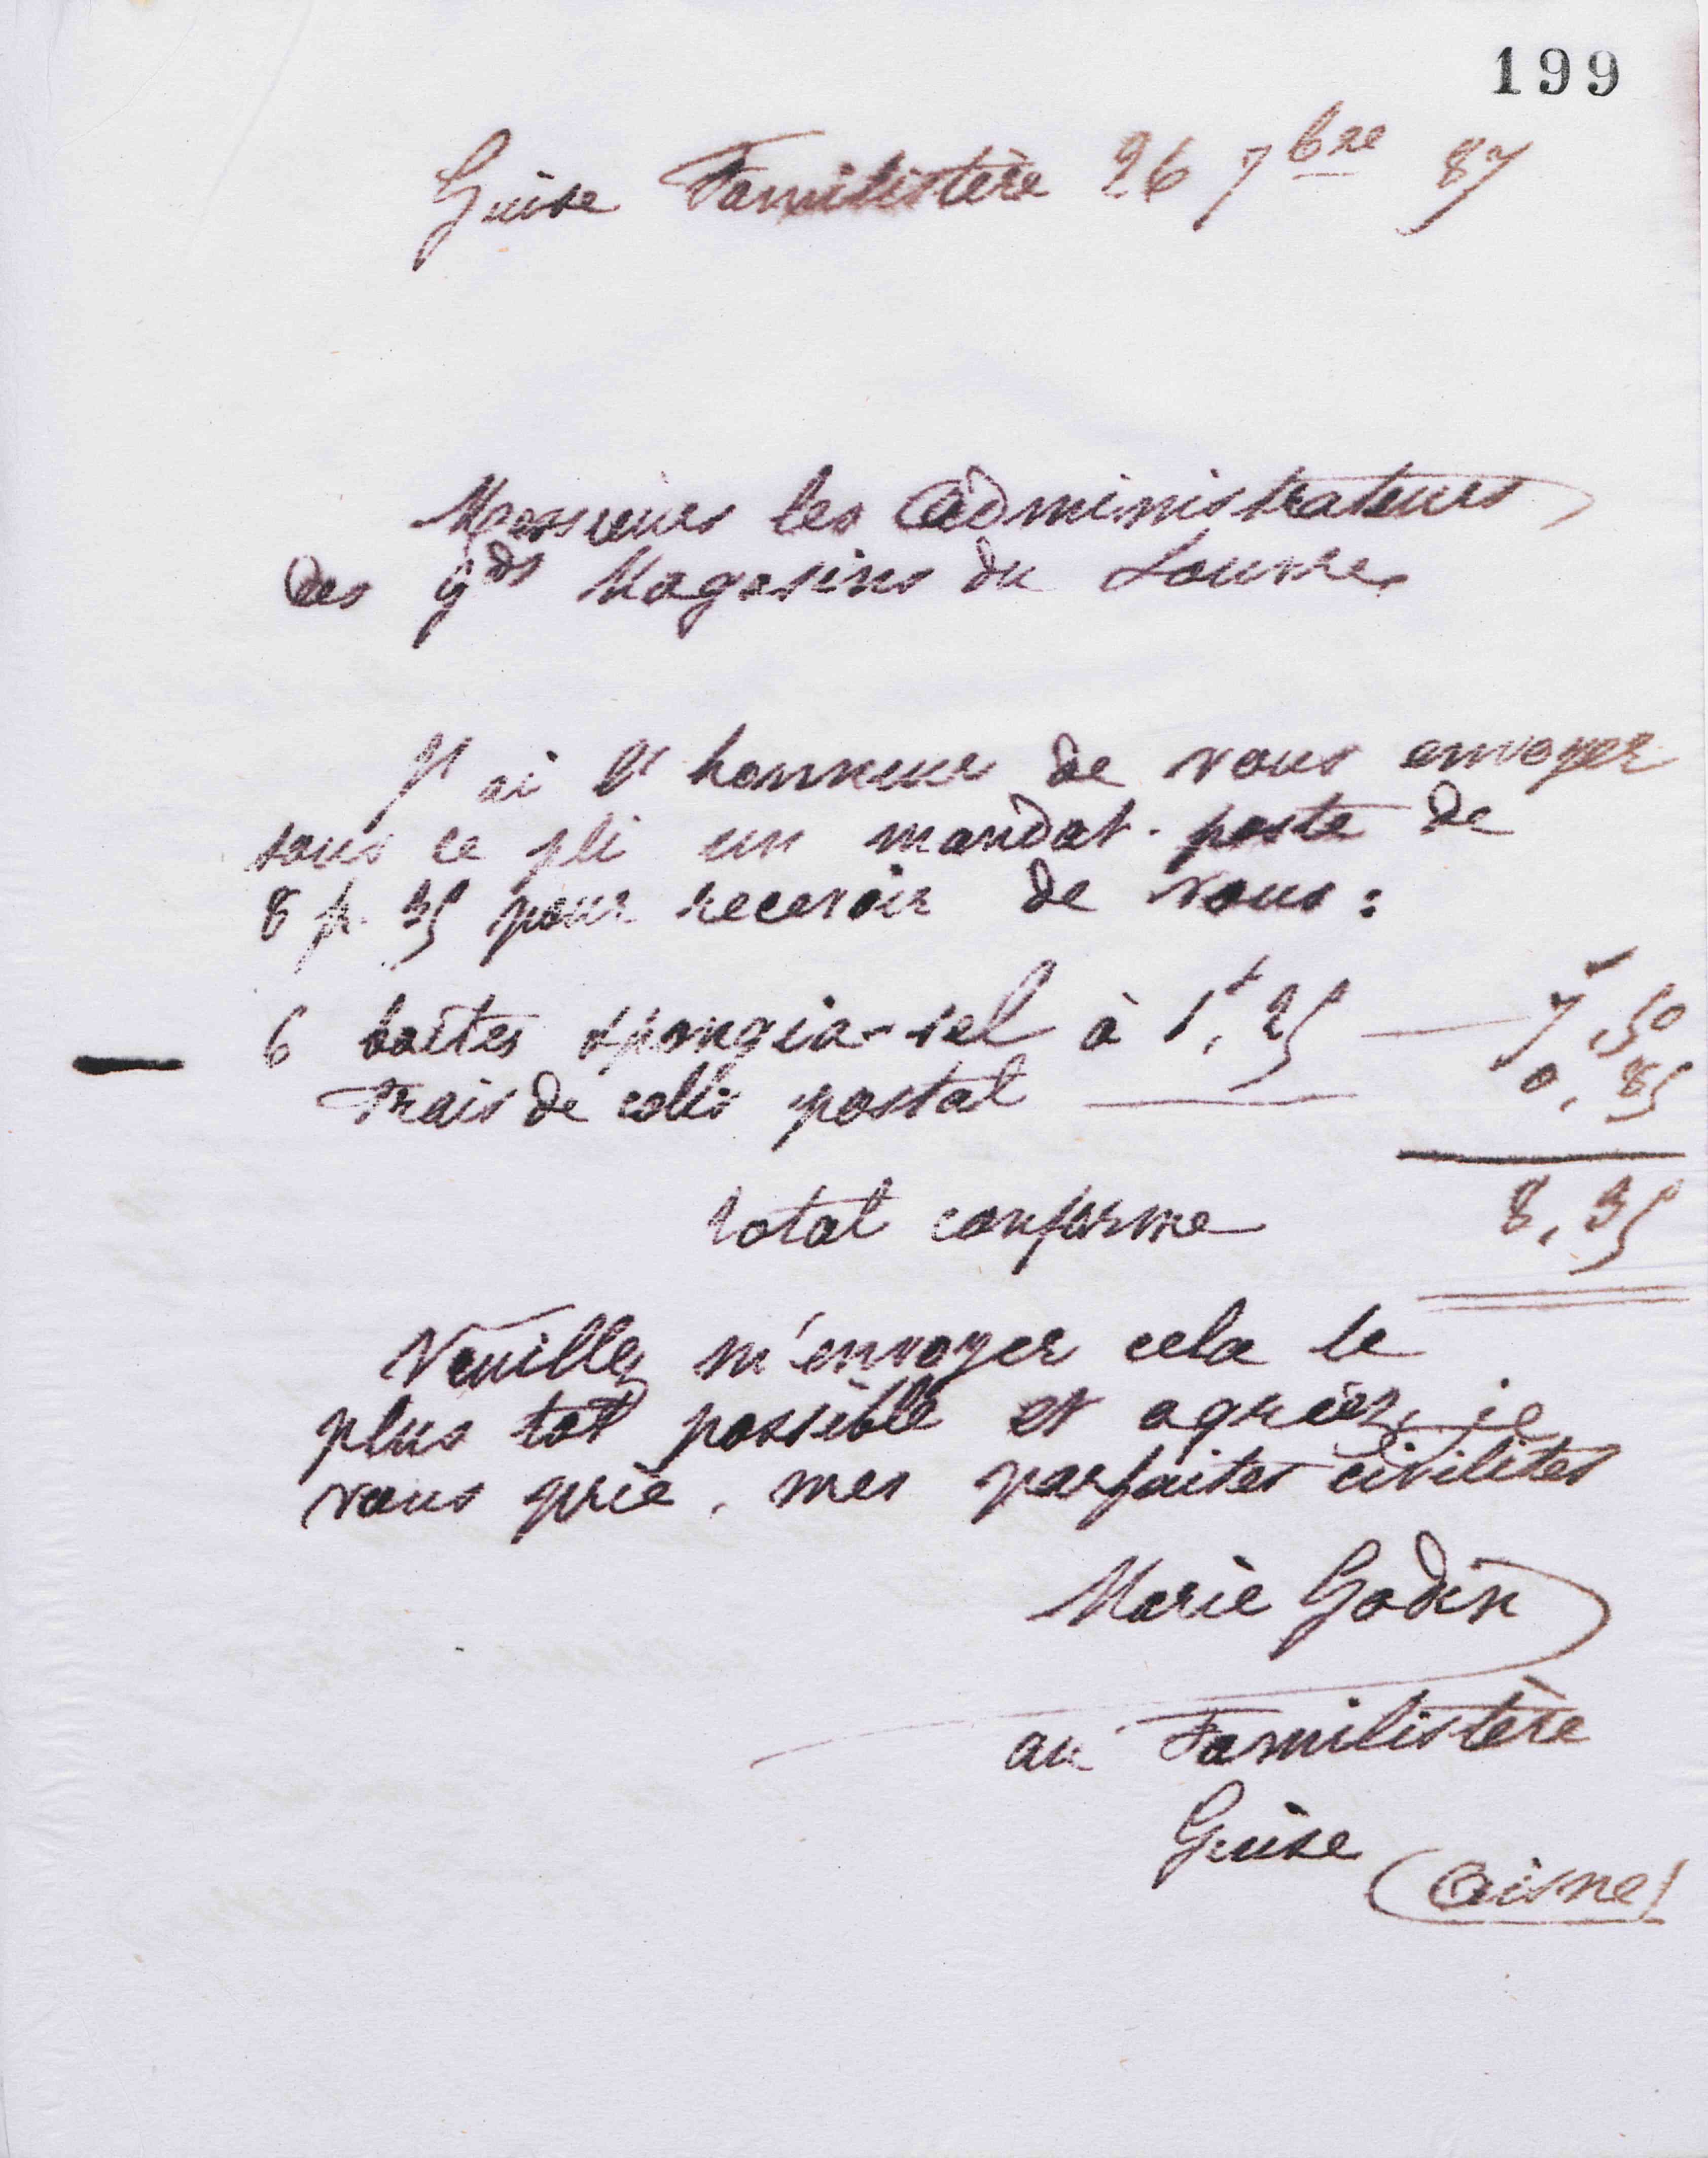 199
Guise Familistère 26 7bre 87
Messieurs les Administrateurs
des gds Magasins du Louvre.
J'ai l'honneur de vous envoyer
sous ce pli un mandat-poste de
8 fr. 35 pour recevoir de vous :
6 boîtes spongia-sel à 1f,25 — 7,50
Frais de colis postal — 0,85
total conforme 8,35
Veuillez m'envoyer cela le
plus tôt possible et agréer, je
vous prie, mes parfaites civilités
Marie Godin
au Familistère
Guise
(Aisne)